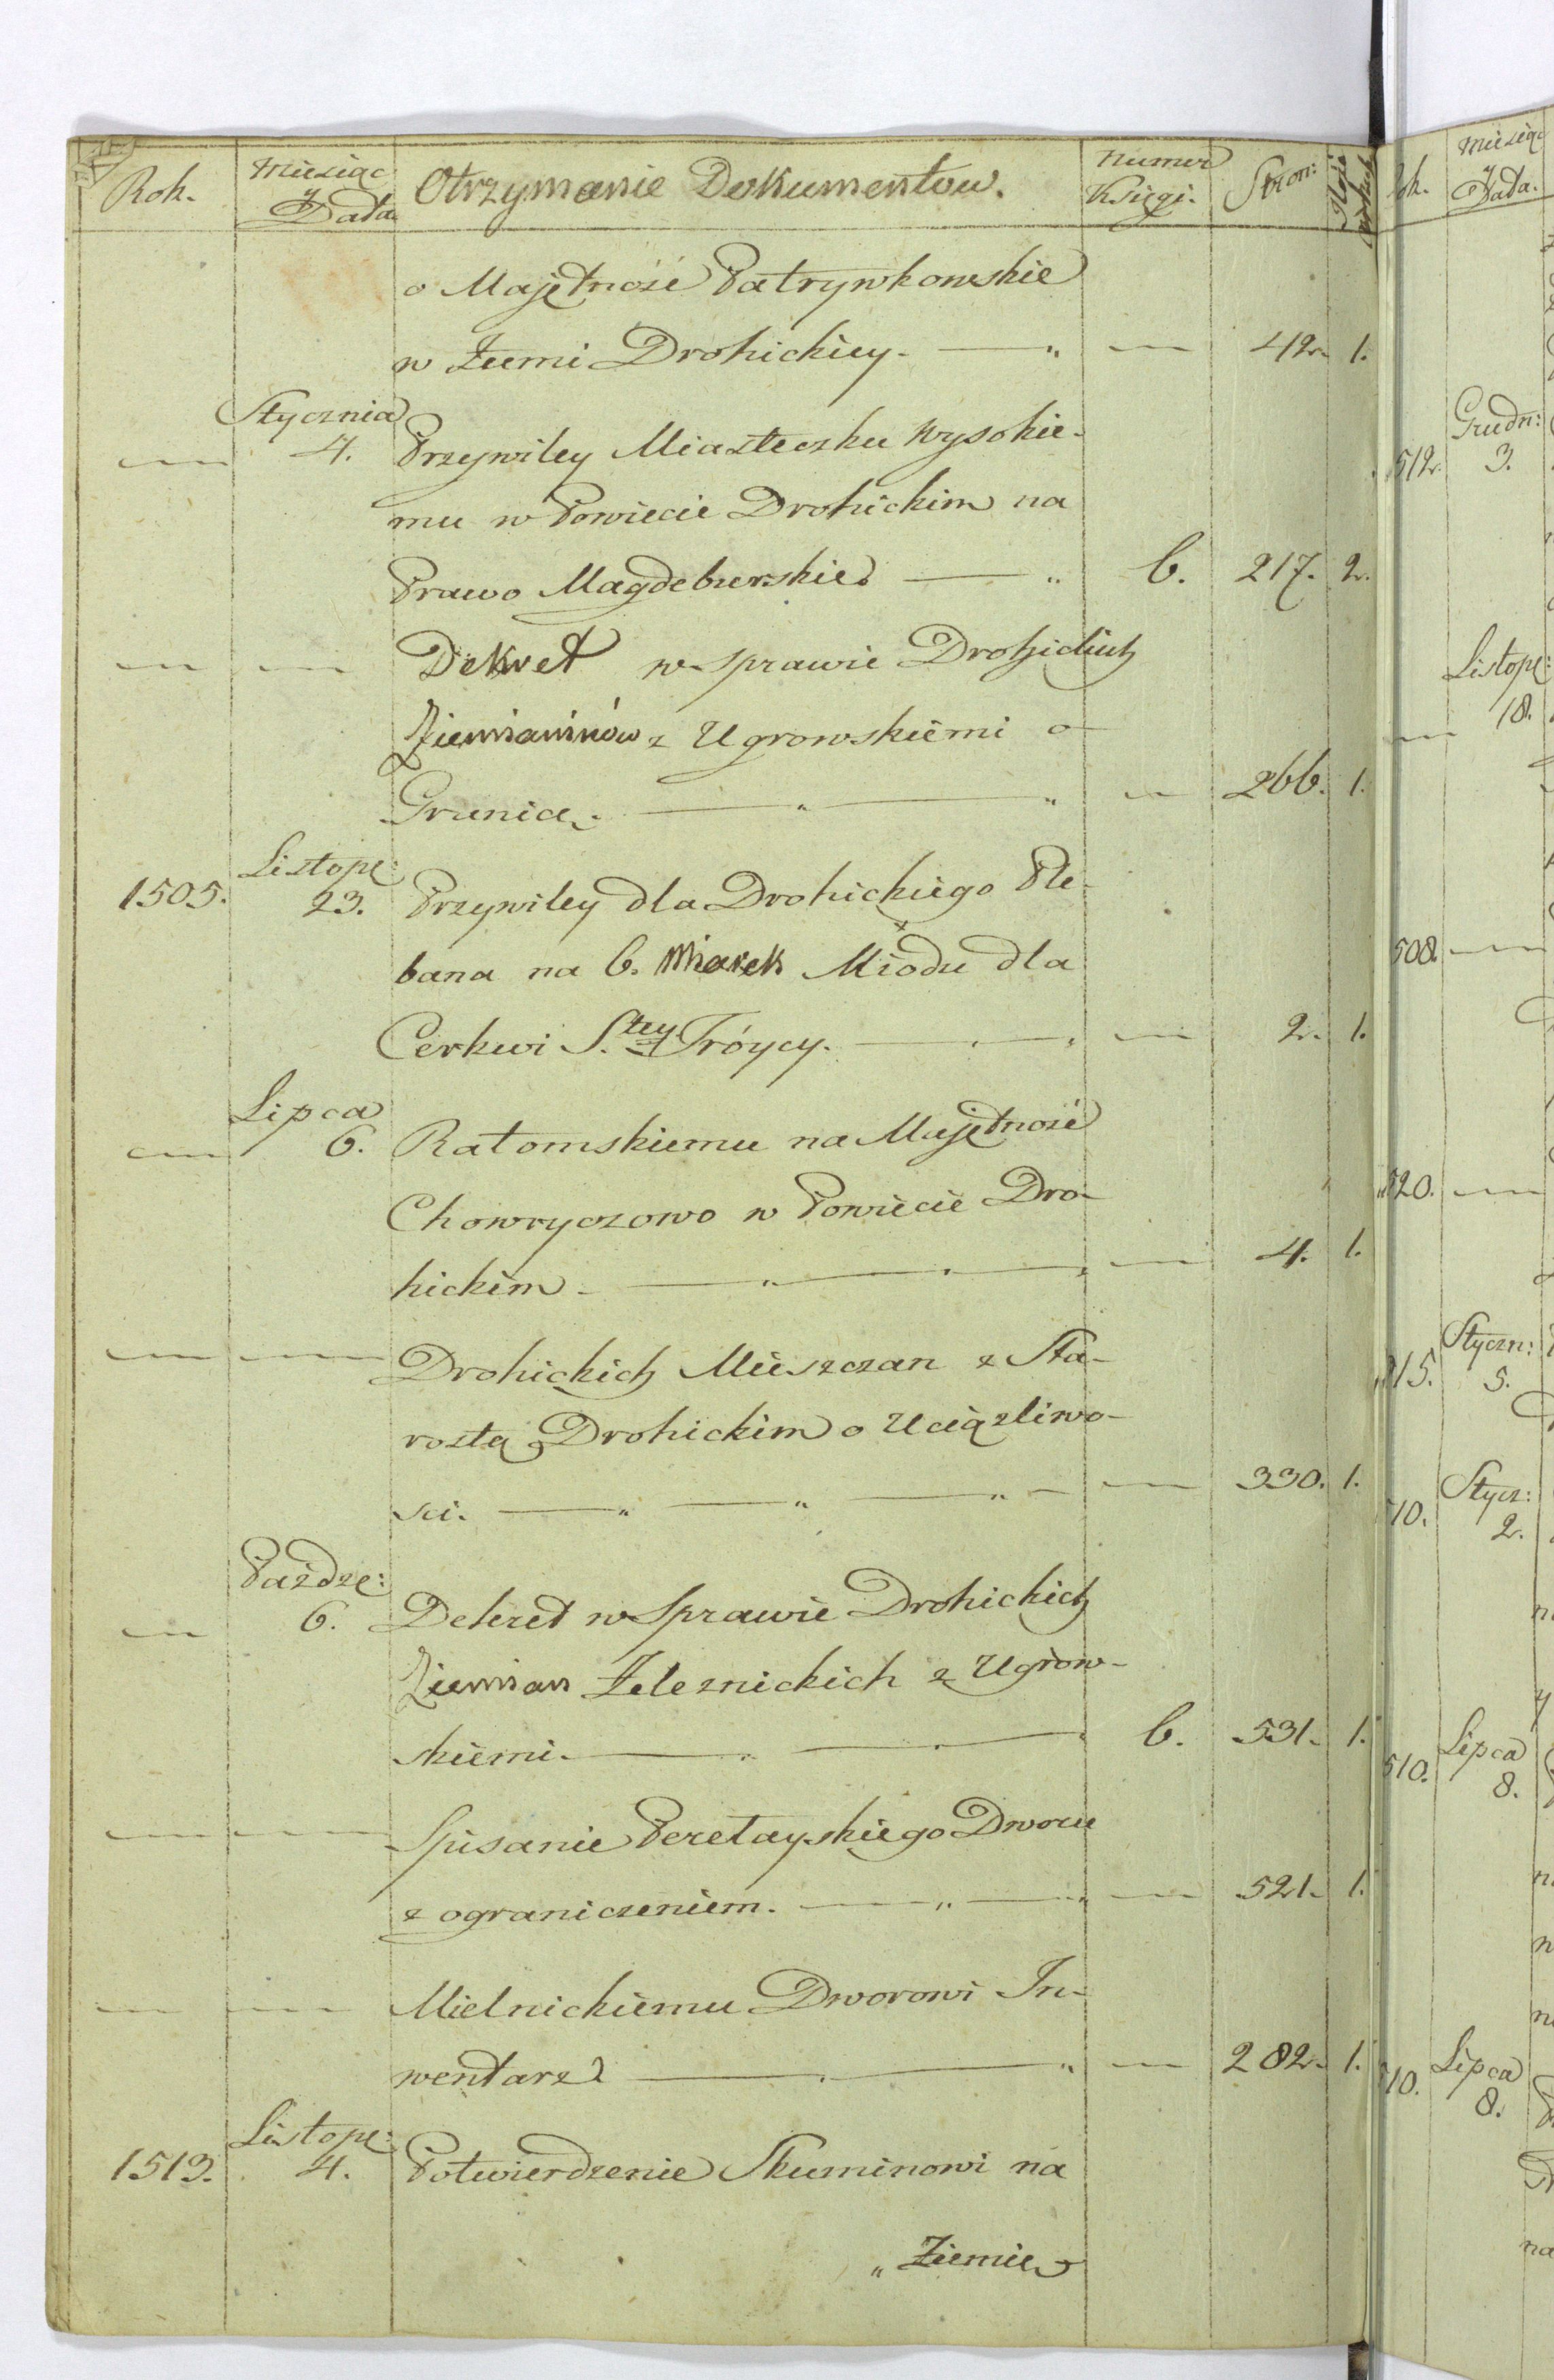 Rok. Miesiąc y Data. Otrzymanie Dokumentow. Numer Księgi. Stron:
o Majętność Patrynkowskie
w Ziemi Drohickiey. — 42. 1.
Stycznia
4. Przywiley Miasteczku Wysokie-
mu w Powiecie Drohickim na
Prawo Magdeburskie. — 6. 217. 2.
Dekret w sprawie Drohickich
Ziemianinów z Ugrowskiemi o
Granice. — 266. 1.
Listop:
1505. 23. Przywiley dla Drohickiego Ple-
bana na 6. Miarek Miodu dla
Cerkwi S.tey Tróycy. — 2. 1.
Lipca
6. Ratomskiemu na Majętność
Chowryczowo w Powiecie Dro-
hickim. — 4. 1.
Drohickich Mieszczan z Sta-
rostą Drohickim o Uciążliwo-
sci. — 330. 1.
Paźdz:
6. Dekret w Sprawie Drohickich
Ziemian Zeleznickich z Ugrow-
skiemi. — 6. 531. 1.
Spisanie Peretayskiego Dworu
z ograniczeniem. — 521. 1.
Mielnickiemu Dworowi In-
wentarz — 282. 1.
Listop:
1513. 4. Potwierdzenie Skuminowi na
„ Ziemie
Miesiąc
y Data.
Grudn:
512. 3.
Listop:
18.
508.
520.
Styczn:
515. 5.
Stycz:
510. 2.
Lipca
510. 8.
Lipca
510. 8.